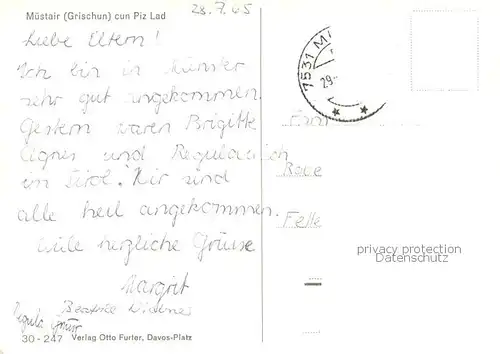 Müstair (Grischun) cun Piz Lad
28.7.65
Liebe Eltern!
Ich bin in Münster
sehr gut angekommen.
Gestern waren Brigitte
Agnes und Regula mich
im Tirol. Wir sind
alle heil angekommen.
Viele herzliche Grüsse
Margrit
Beatrice
Regula
30 - 247 Verlag Otto Furter, Davos-Platz
7531 MÜ
29.
privacy protection
Datenschutz